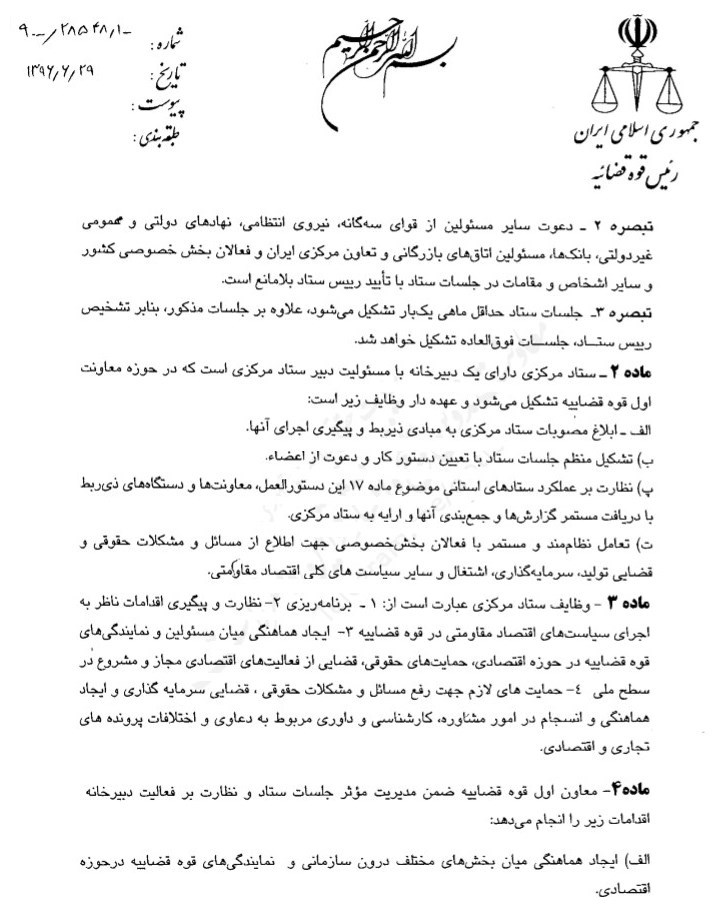 بسم الله الرحمن الرحیم
جمهوری اسلامی ایران
رئیس قوه قضائیه
شماره: ۹۰۰۰/۲۸۵۴۸/۱۰۰
تاریخ: ۱۳۹۶/۶/۲۹
پیوست:
طبقه‌بندی:
تبصره ۲ ـ دعوت سایر مسئولین از قوای سه‌گانه، نیروی انتظامی، نهادهای دولتی و عمومی
غیردولتی، بانک‌ها، مسئولین اتاق‌های بازرگانی و تعاون مرکزی ایران و فعالان بخش خصوصی کشور
و سایر اشخاص و مقامات در جلسات ستاد با تأیید رییس ستاد بلامانع است.
تبصره ۳ـ جلسات ستاد حداقل ماهی یک‌بار تشکیل می‌شود، علاوه بر جلسات مذکور، بنابر تشخیص
رییس ستـاد، جلسـات فوق‌العاده تشکیل خواهد شد.
ماده ۲ ـ ستاد مرکزی دارای یک دبیرخانه با مسئولیت دبیر ستاد مرکزی است که در حوزه معاونت
اول قوه قضاییه تشکیل می‌شود و عهده دار وظایف زیر است:
الف ـ ابلاغ مصوبات ستاد مرکزی به مبادی ذیربط و پیگیری اجرای آنها.
ب) تشکیل منظم جلسات ستاد با تعیین دستور کار و دعوت از اعضاء.
پ) نظارت بر عملکرد ستادهای استانی موضوع ماده ۱۷ این دستورالعمل، معاونت‌ها و دستگاه‌های ذی‌ربط
با دریافت مستمر گزارش‌ها و جمع‌بندی آنها و ارایه به ستاد مرکزی.
ت) تعامل نظام‌مند و مستمر با فعالان بخش‌خصوصی جهت اطلاع از مسائل و مشکلات حقوقی و
قضایی تولید، سرمایه‌گذاری، اشتغال و سایر سیاست های کلی اقتصاد مقاومتی.
ماده ۳ - وظایف ستاد مرکزی عبارت است از: ۱ ـ برنامه‌ریزی ۲- نظارت و پیگیری اقدامات ناظر به
اجرای سیاست‌های اقتصاد مقاومتی در قوه قضاییه ۳- ایجاد هماهنگی میان مسئولین و نمایندگی‌های
قوه قضاییه در حوزه اقتصادی، حمایت‌های حقوقی، قضایی از فعالیت‌های اقتصادی مجاز و مشروع در
سطح ملی ٤- حمایت های لازم جهت رفع مسائل و مشکلات حقوقی ، قضایی سرمایه گذاری و ایجاد
هماهنگی و انسجام در امور مشاوره، کارشناسی و داوری مربوط به دعاوی و اختلافات پرونده های
تجاری و اقتصادی.
ماده۴- معاون اول قوه قضاییه ضمن مدیریت مؤثر جلسات ستاد و نظارت بر فعالیت دبیرخانه
اقدامات زیر را انجام می‌دهد:
الف) ایجاد هماهنگی میان بخش‌های مختلف درون سازمانی و نمایندگی‌های قوه قضاییه درحوزه
اقتصادی.